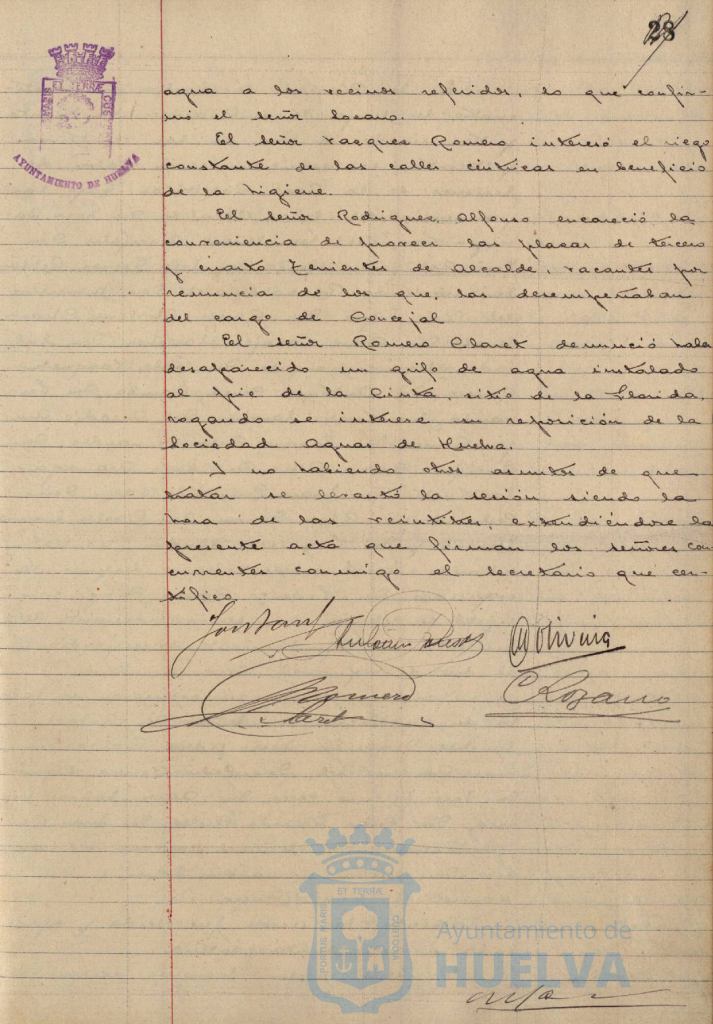 28
PORTUS MARIS
ET TERRÆ
CUSTODIA
AYUNTAMIENTO DE HUELVA
agua a los vecinos referidos, lo que confir-
mó el señor Lozano.
El señor Vazquez Romero interesó el riego
constante de las calles céntricas en beneficio
de la higiene.
El señor Rodriguez Alfonso encareció la
conveniencia de proveer las plazas de tercero
y cuarto Tenientes de Alcalde, vacantes por
renuncia de los que, las desempeñaban
del cargo de Concejal
El señor Romero Claret denunció haber
desaparecido un grifo de agua instalado
al pie de la Cinta, sitio de la Florida,
rogando se interese su reposición de la
Sociedad Aguas de Huelva.
Y no habiendo otros asuntos de que
tratar se levantó la sesión siendo la
hora de las veintitres, extendiéndose la
presente acta que firman los señores con-
currentes conmigo el Secretario que cer-
tifico.
M Oliveira
Romero
Claret
C Lozano
ET TERRÆ
PORTUS MARIS
CUSTODIA
Ayuntamiento de
HUELVA